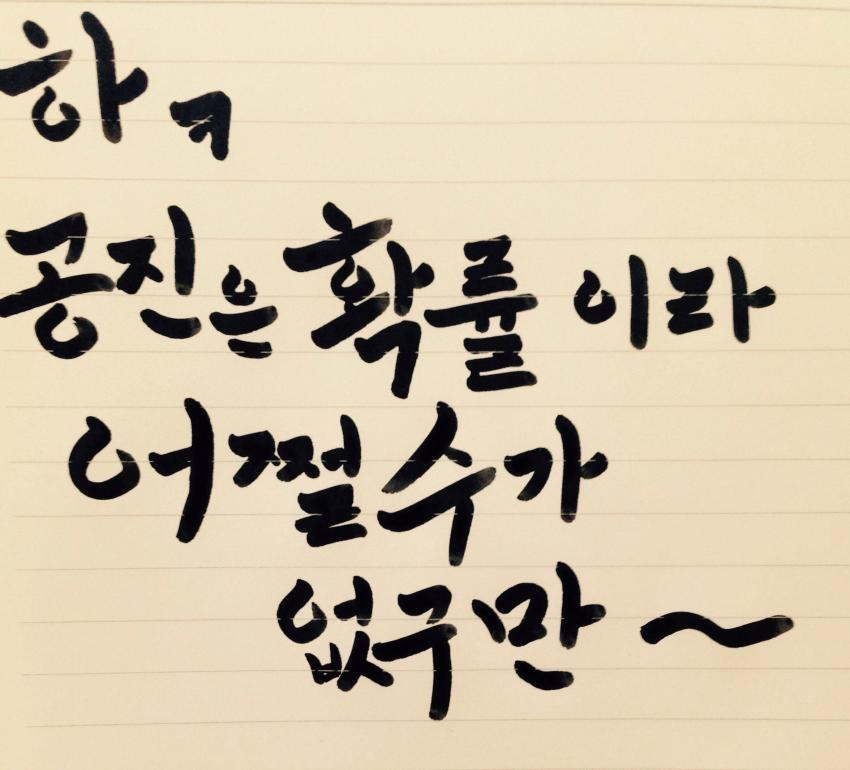 하ㅋ
공진은 확률이라
어쩔수가
없구만~